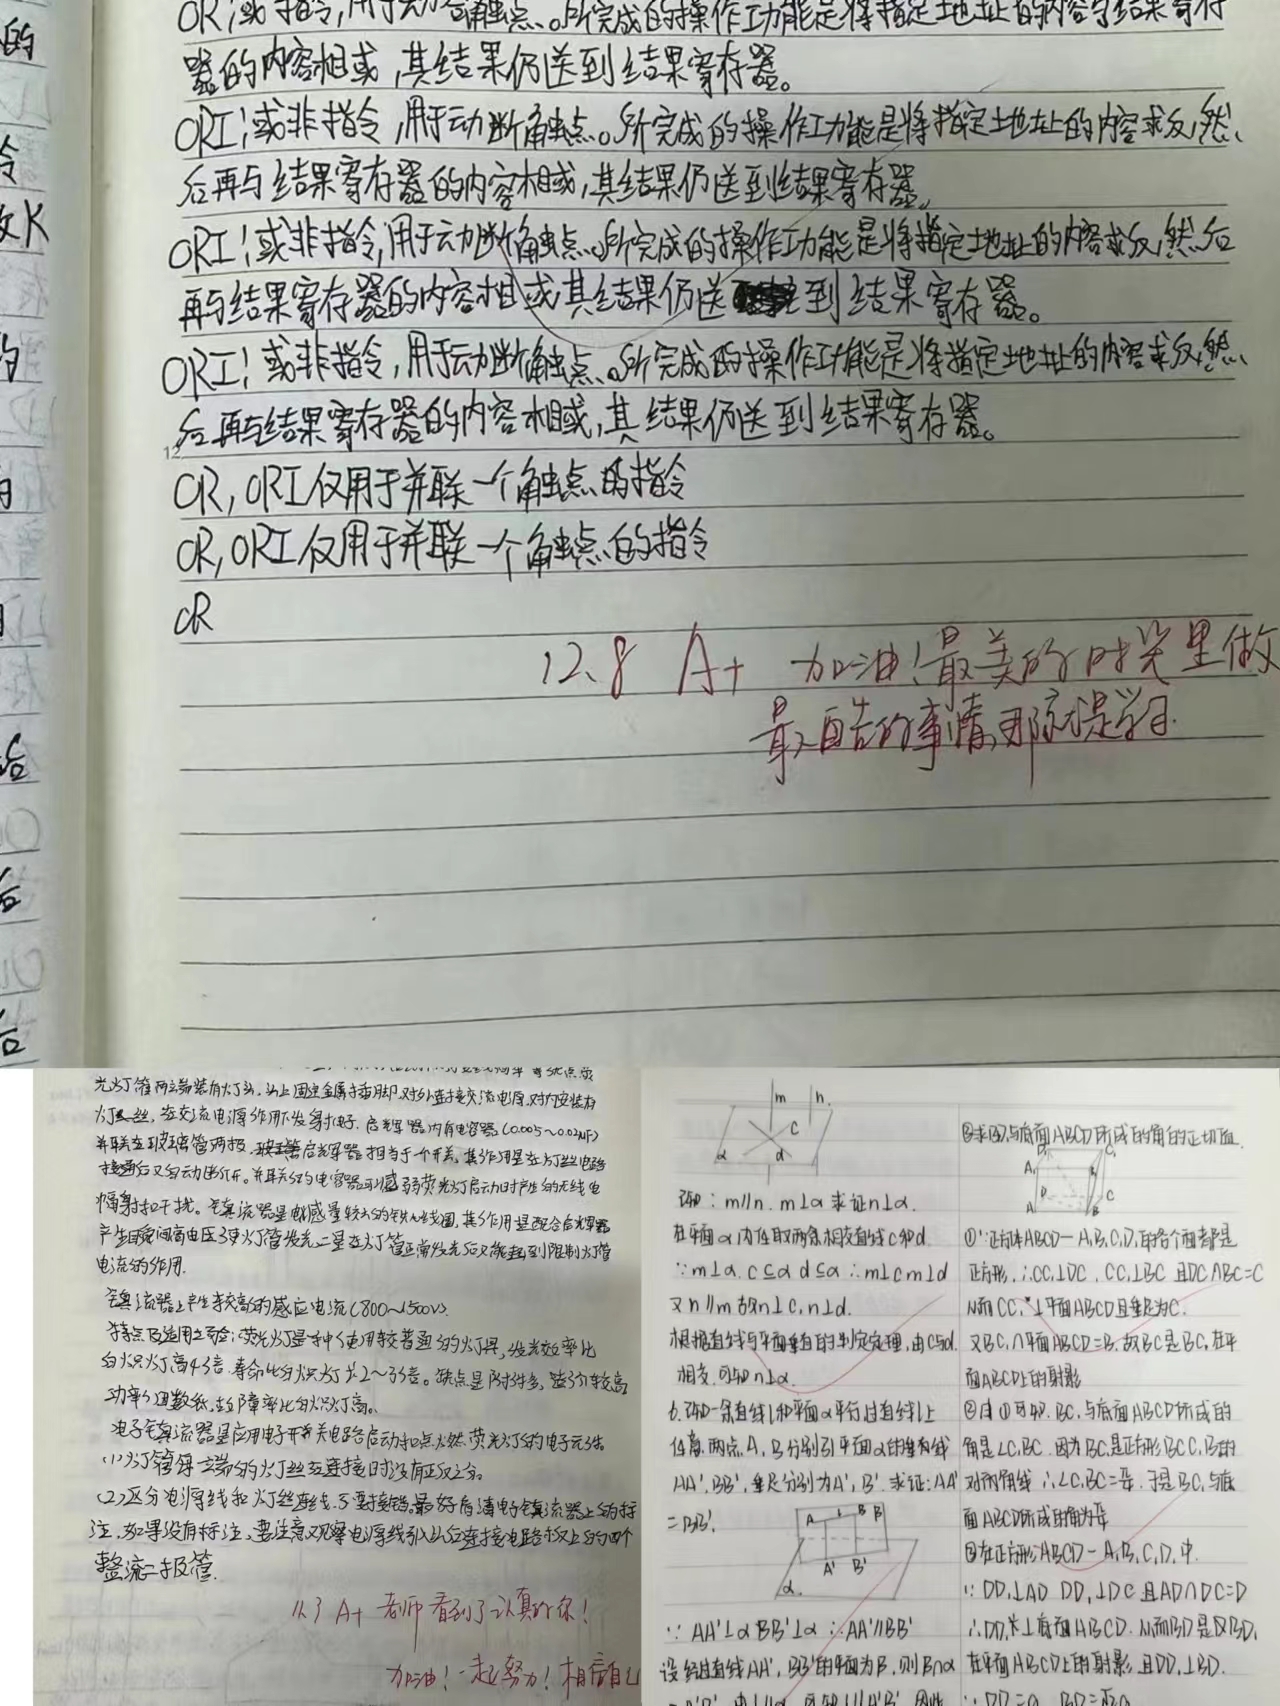 OR;或指令,用于动合触点。所完成的操作功能是将指定地址的内容与结果寄存
器的内容相或,其结果仍送到结果寄存器。
ORI;或非指令,用于动断触点。所完成的操作功能是将指定地址的内容求反,然
后再与结果寄存器的内容相或,其结果仍送到结果寄存器。
ORI;或非指令,用于动断触点。所完成的操作功能是将指定地址的内容求反,然后
再与结果寄存器的内容相或,其结果仍送到结果寄存器。
ORI;或非指令,用于动断触点。所完成的操作功能是将指定地址的内容求反,然
后再与结果寄存器的内容相或,其结果仍送到结果寄存器。
12
OR,ORI仅用于并联一个触点的指令
OR,ORI仅用于并联一个触点的指令
OR
12.8 A+ 加油!最美的时光里做
最酷的事情,那就是学习.
光灯管两端装有灯头,头上固定金属插脚,对外连接交流电源,对内安装有
灯丝,在交流电源作用下发射电子.启辉器内有电容器(0.005~0.02μF)
并联在玻璃管两极,启辉器相当于一个开关,其作用是在灯丝电路
接通后又自动断开。并联的电容器可以减弱荧光灯启动时产生的无线电
辐射和干扰。镇流器是电感量较大的铁心线圈,其作用是配合启辉器
产生瞬间高电压,使灯管发光,二是在灯管正常发光后又能起到限制灯管
电流的作用.
镇流器上产生较高的感应电流(800~1500V).
特点及适用场合:荧光灯是一种使用较普遍的灯具,发光效率比
白炽灯高4.5倍.寿命比白炽灯大2~3倍。缺点是附件多,造价较高
功率因数低,故障率比白炽灯高。
电子镇流器是应用电子开关电路启动和点燃荧光灯的电子元件.
(1)灯管每一端的灯丝在连接时没有正负之分.
(2)区分电源线和灯丝连线,不要接错.最好看清电子镇流器上的标
注,如果没有标注,要注意观察电源线引入以后连接电路板上的四个
整流二极管.
11.3 A+ 老师看到了认真的你!
加油!一起努力!相信自己
m n.
c
α d
已知:m//n. m⊥α 求证n⊥α.
在平面α内任取两条相交直线c和d.
∵m⊥α.c⊆α d⊆α ∴m⊥c m⊥d
又n//m 故n⊥c,n⊥d.
根据直线与平面垂直的判定定理,由c与d
相交,可知n⊥α.
6.已知一条直线l和平面α平行,过直线l上
任意两点A,B分别引平面α的垂线
AA',BB',垂足分别为A',B'.求证:AA'
=BB'.
A l B β
A' B'
α
∵AA'⊥α BB'⊥α ∴AA'//BB'
设经过直线AA',BB'的平面为β,则β∩α
③求BD₁与底面ABCD所成的角的正切值.
D₁ C₁
A₁ B₁
D C
A B
①∵正方体ABCD-A₁B₁C₁D₁的各个面都是
正方形,∴CC₁⊥DC,CC₁⊥BC 且DC∩BC=C
从而CC₁⊥平面ABCD且垂足为C.
又BC₁∩平面ABCD=B.故BC是BC₁在平
面ABCD上的射影
②由①可知,BC₁与底面ABCD所成的
角是∠C₁BC.因为BC₁是正方形BCC₁B₁的
对角线∴∠C₁BC=π/4.于是BC₁与底
面ABCD所成的角为π/4
③在正方形ABCD-A₁B₁C₁D₁中.
∵DD₁⊥AD DD₁⊥DC 且AD∩DC=D
∴DD₁⊥底面ABCD.从而BD是BD₁
在平面ABCD上的射影,且DD₁⊥BD.